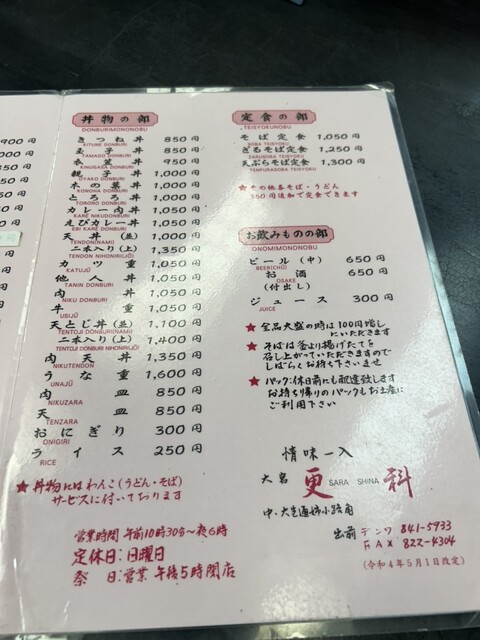 丼物の部
DONBURIMONONOBU
きつね丼 850円
KITUNE DONBURI
玉子丼 850円
TAMAGO DONBURI
衣笠丼 950円
KINUGASA DONBURI
親子丼 1,000円
OYAKO DONBURI
木の葉丼 1,000円
KONOHA DONBURI
とろろ丼 1,000円
TORORO DONBURI
カレー肉丼 1,050円
KARE NIKUDONBURI
えびカレー丼 1,050円
EBI KARE DONBURI
天丼(並) 1,000円
TENDON(NAMI)
二本入り(上) 1,350円
TENDON NIHONIRI(JŌ)
カツ重 1,050円
KATUJŪ
他人丼 1,050円
TANIN DONBURI
肉丼 1,050円
NIKU DONBURI
牛重 1,050円
USIJŪ
天とじ丼(並) 1,100円
TENTOJI DONBURI(NAMI)
二本入り(上) 1,400円
TENTOJI DONBURI NIHONIRI(JŌ)
肉天丼 1,350円
NIKUTENDON
うな重 1,600円
UNAJŪ
肉皿 850円
NIKUZARA
天皿 850円
TENZARA
おにぎり 300円
ONIGIRI
ライス 250円
RICE
★丼物にはわんこ(うどん・そば)
サービスに付いております
営業時間 午前10時30分~夜6時
定休日:日曜日
祭 日:営業 午后5時閉店
定食の部
TEISYOKUNOBU
そば定食 1,050円
SOBA TEISYOKU
ざるそば定食 1,250円
ZARUSOBA TEISYOKU
天ぷらそば定食 1,300円
TEMPURASOBA TEISYOKU
★その他各そば・うどん
350円追加で定食できます
お飲みものの部
ONOMIMONONOBU
ビール(中) 650円
BEER(CHŪ)
お酒 650円
OSAKE
(付出し)
ジュース 300円
JUICE
★全品大盛の時は100円増し
にいただきます
★そばは釜より揚げたてを
召し上がっていただきますので
しばらくお待ち下さいませ
★パック:休日前にも配達致します
お持ち帰りのパックもお土産に
ご利用下さい
情味一入
大宮 更科
SARA SHINA
中・大宮通姉小路角
出前 デンワ 841-5933
FAX 822-4304
(令和4年5月1日改定)
900円
000円